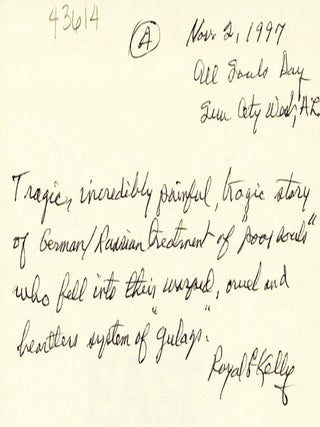 43614
A
Nov 2, 1997
All Souls Day
Sun City West, AZ
Tragic, incredibly painful, tragic story
of German/Russian treatment of "poor souls"
who fell into their warped, cruel and
heartless system of "gulags".
Royal E Kelly